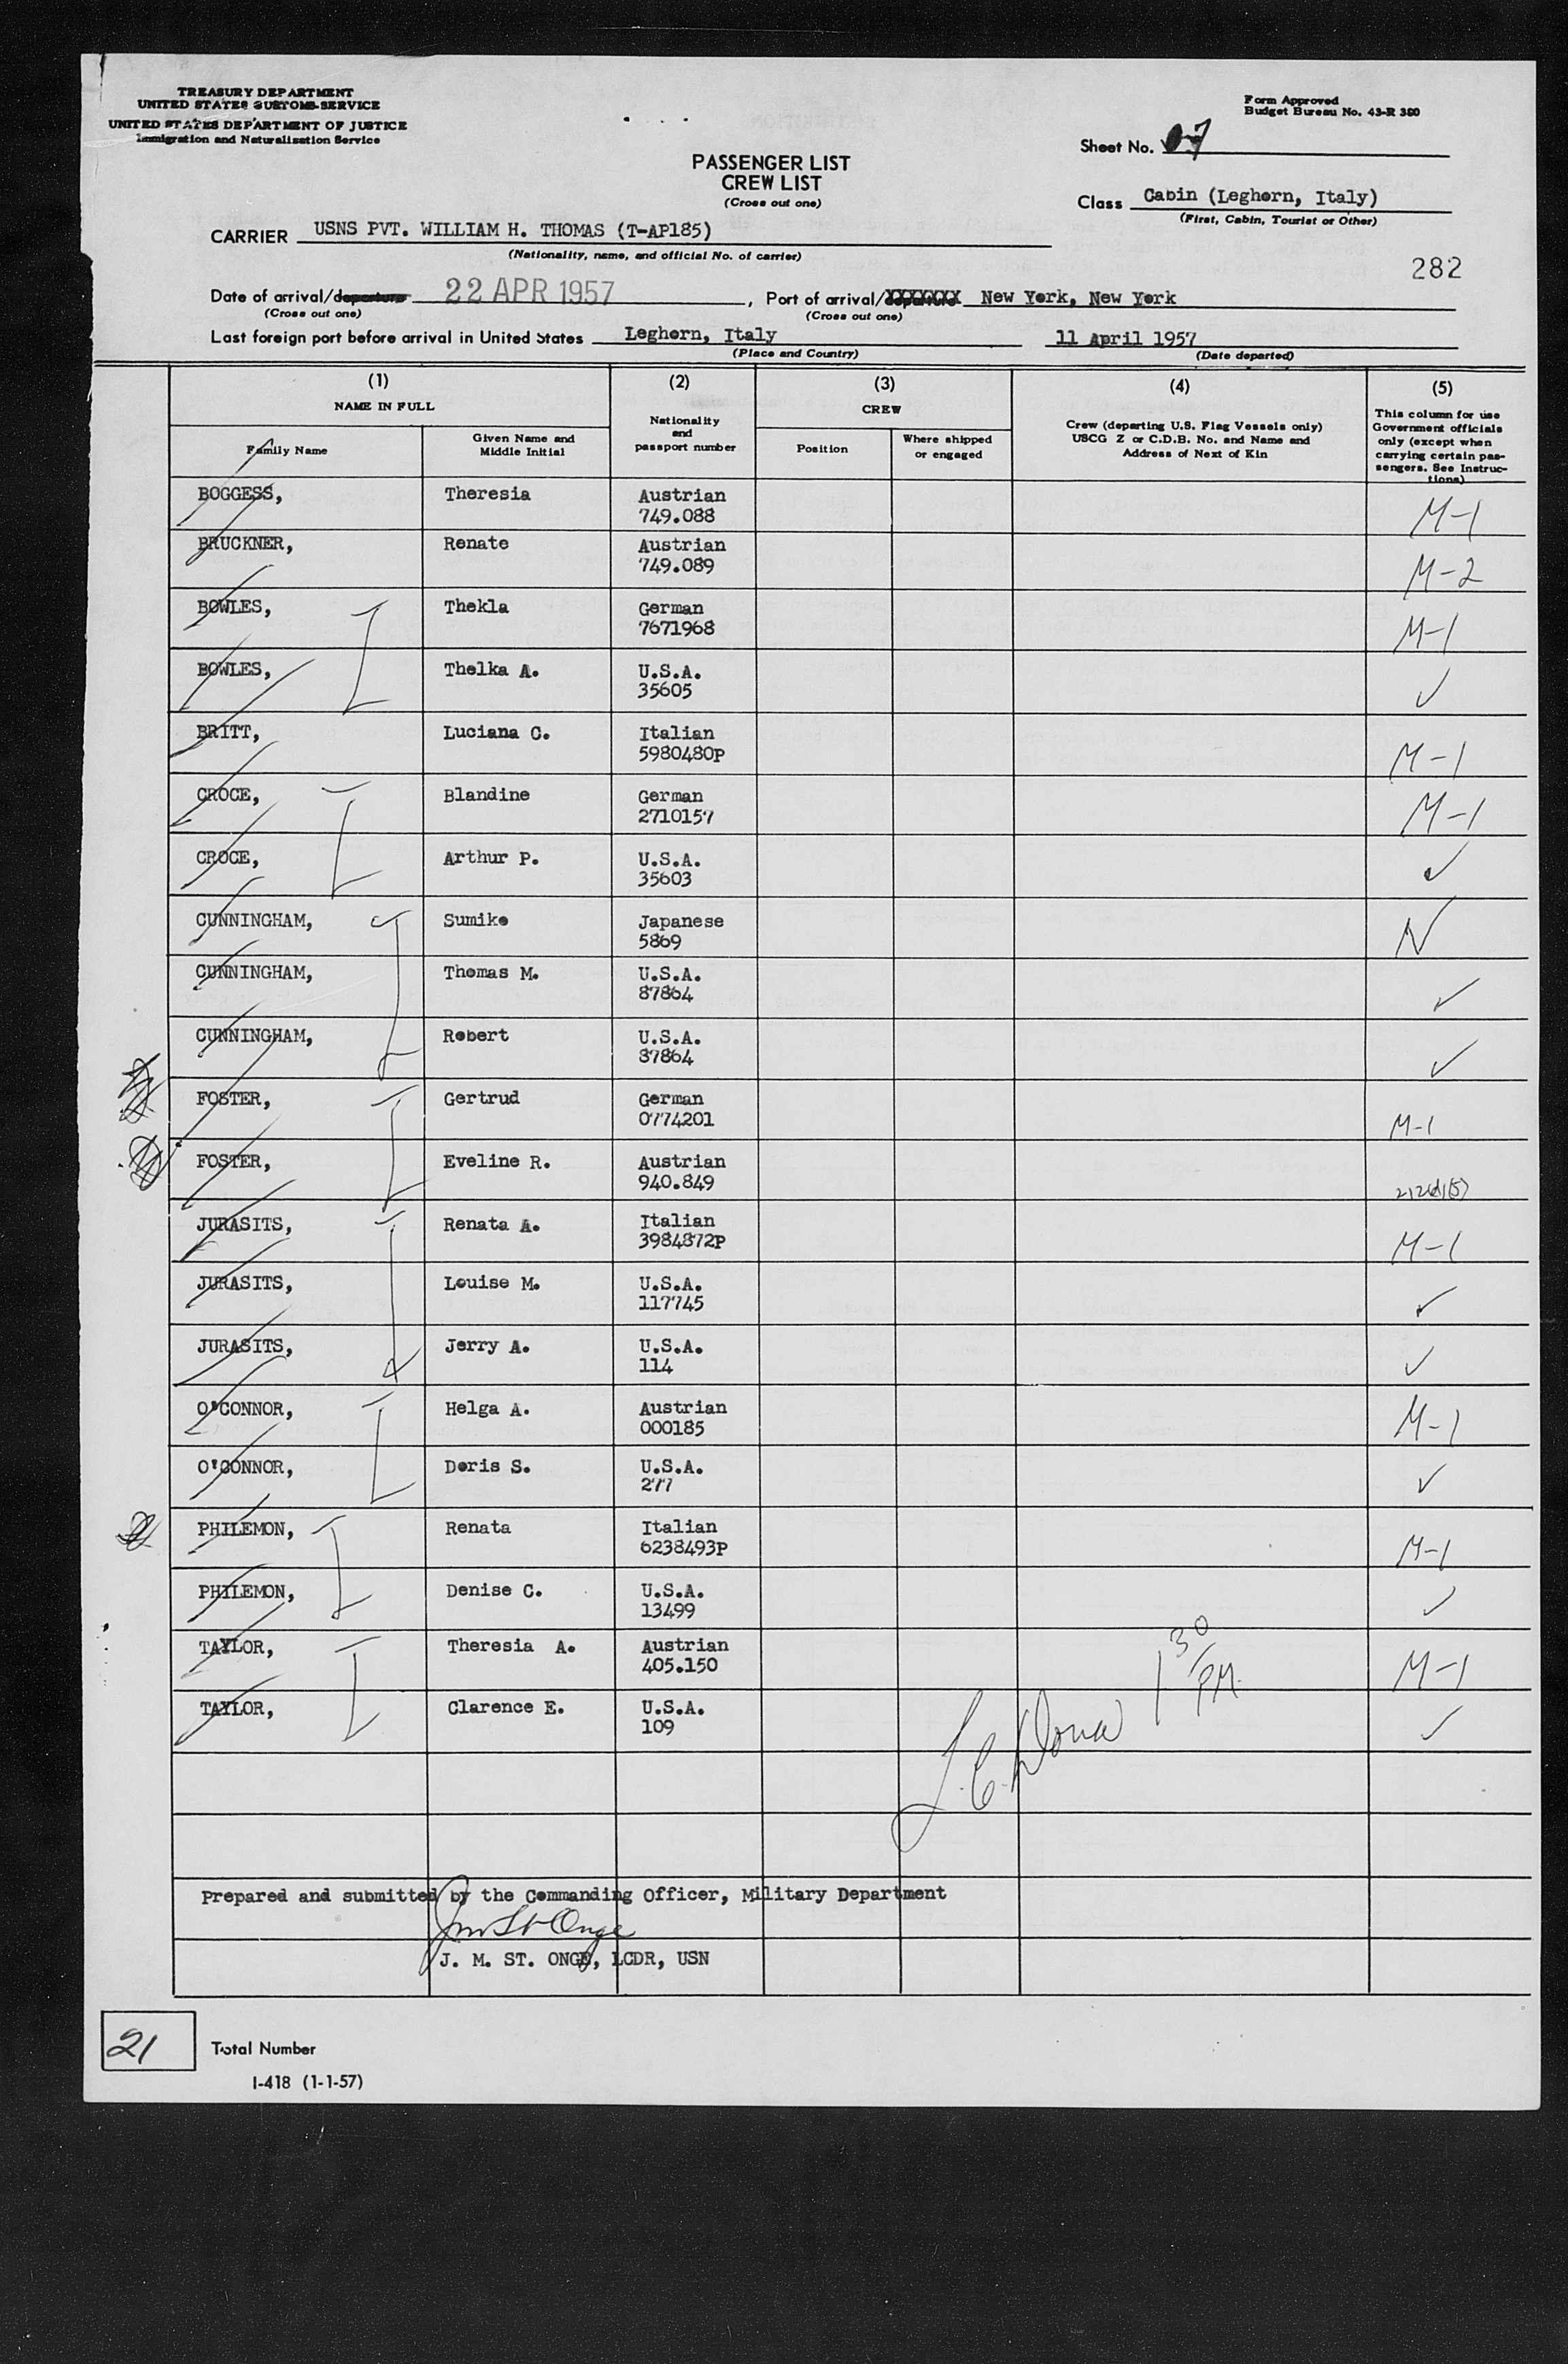 TREASURY DEPARTMENT
UNITED STATES CUSTOMS SERVICE
UNITED STATES DEPARTMENT OF JUSTICE
Immigration and Naturalization Service
Form Approved
Budget Bureau No. 43-R 380
Sheet No. 7
PASSENGER LIST
CREW LIST
(Cross out one)
Class Cabin (Leghorn, Italy)
(First, Cabin, Tourist or Other)
CARRIER USNS PVT. WILLIAM H. THOMAS (T-AP185)
(Nationality, name, and official No. of carrier)
282
Date of arrival/departure 22 APR 1957, Port of arrival/departure New York, New York
(Cross out one) (Cross out one)
Last foreign port before arrival in United States Leghorn, Italy 11 April 1957
(Place and Country) (Date departed)
(1) (2) (3) (4) (5)
NAME IN FULL
Family Name
Given Name and
Middle Initial
Nationality
and
passport number
CREW
Position
Where shipped
or engaged
Crew (departing U.S. Flag Vessels only)
USCG Z or C.D.B. No. and Name and
Address of Next of Kin
This column for use
Government officials
only (except when
carrying certain pas-
sengers. See Instruc-
tions)
BOGGESS, Theresia Austrian
749.088 M-1
BRUCKNER, Renate Austrian
749.089 M-2
BOWLES, Thekla German
7671968 M-1
BOWLES, Thelka A. U.S.A.
35605 ✓
BRITT, Luciana C. Italian
5980480P M-1
CROCE, Blandine German
2710157 M-1
CROCE, Arthur P. U.S.A.
35603 ✓
CUNNINGHAM, Sumiko Japanese
5869 N
CUNNINGHAM, Thomas M. U.S.A.
87864 ✓
CUNNINGHAM, Robert U.S.A.
87864 ✓
FOSTER, Gertrud German
0774201 M-1
FOSTER, Eveline R. Austrian
940.849
JURASITS, Renata A. Italian
3984872P M-1
JURASITS, Louise M. U.S.A.
117745 ✓
JURASITS, Jerry A. U.S.A.
114 ✓
O'CONNOR, Helga A. Austrian
000185 M-1
O'CONNOR, Doris S. U.S.A.
277 ✓
PHILEMON, Renata Italian
6238493P M-1
PHILEMON, Denise C. U.S.A.
13499 ✓
TAYLOR, Theresia A. Austrian
405.150 M-1
TAYLOR, Clarence E. U.S.A.
109 ✓
1 30 PM.
Prepared and submitted by the Commanding Officer, Military Department
J M St Onge
J. M. ST. ONGE, LCDR, USN
21 Total Number
I-418 (1-1-57)